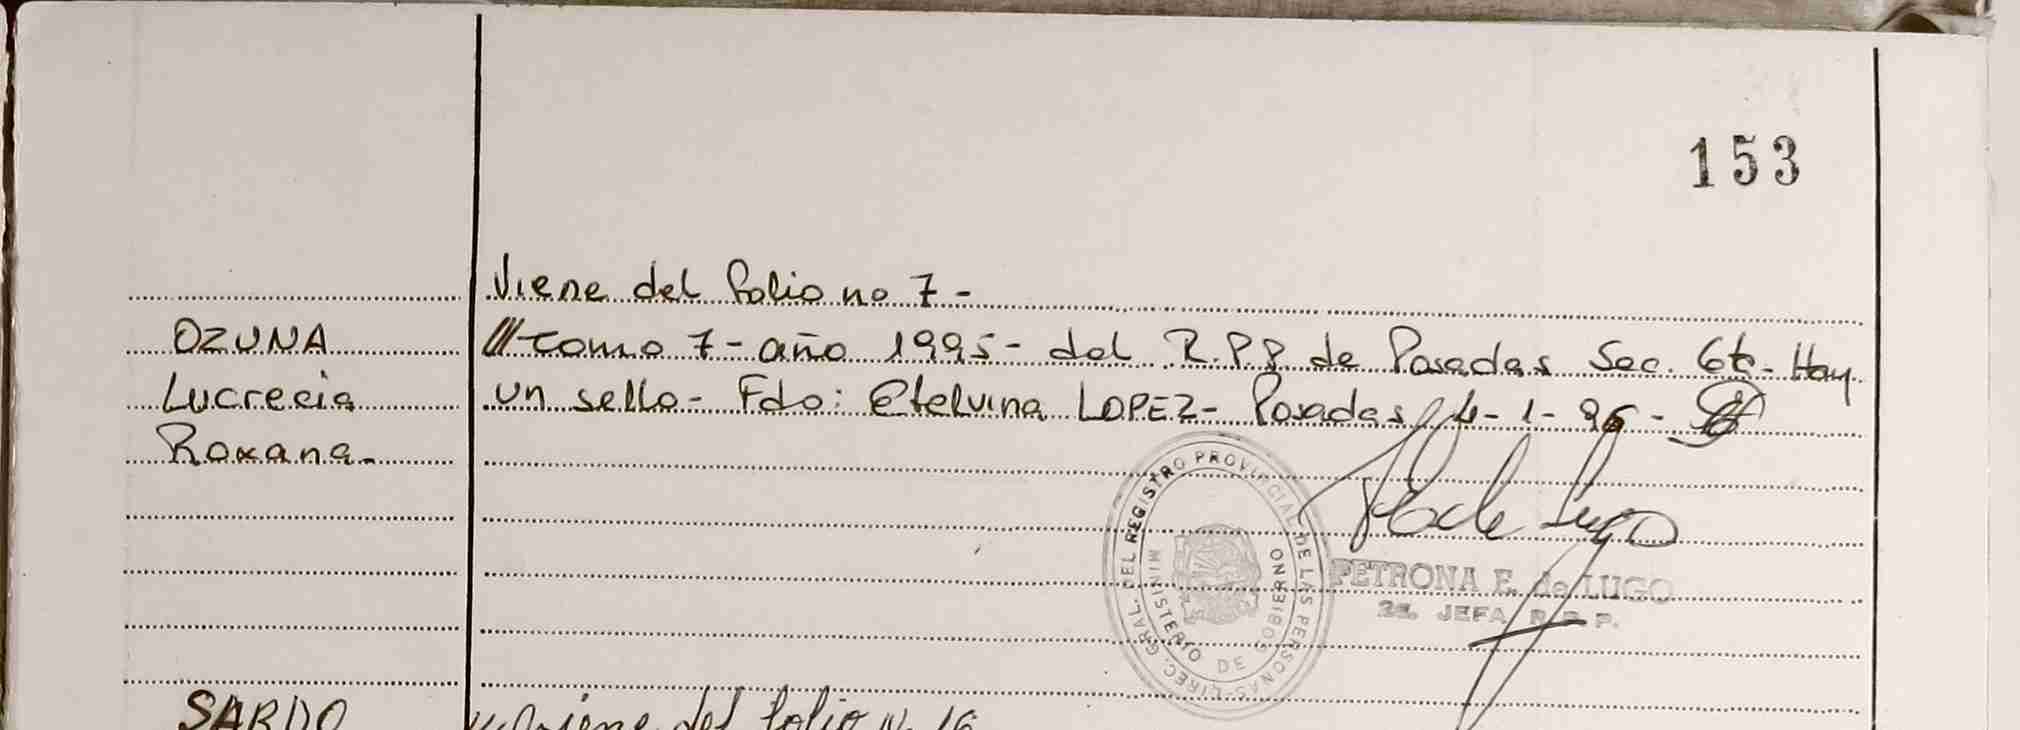 153
Viene del folio no 7-
OZUNA
/// tomo 7- año 1995- del R.P.P de Posadas Sec. 6ta- Hay
Lucrecia
un sello- Fdo: Etelvina LOPEZ- Posadas, 4-1-96-
Roxana-
DIREC. GRAL. DEL REGISTRO PROVINCIAL DE LAS PERSONAS
MINISTERIO DE GOBIERNO
PETRONA E. de LUGO
2a. JEFA R. P. P.
SARDO
Viene del folio N. 16